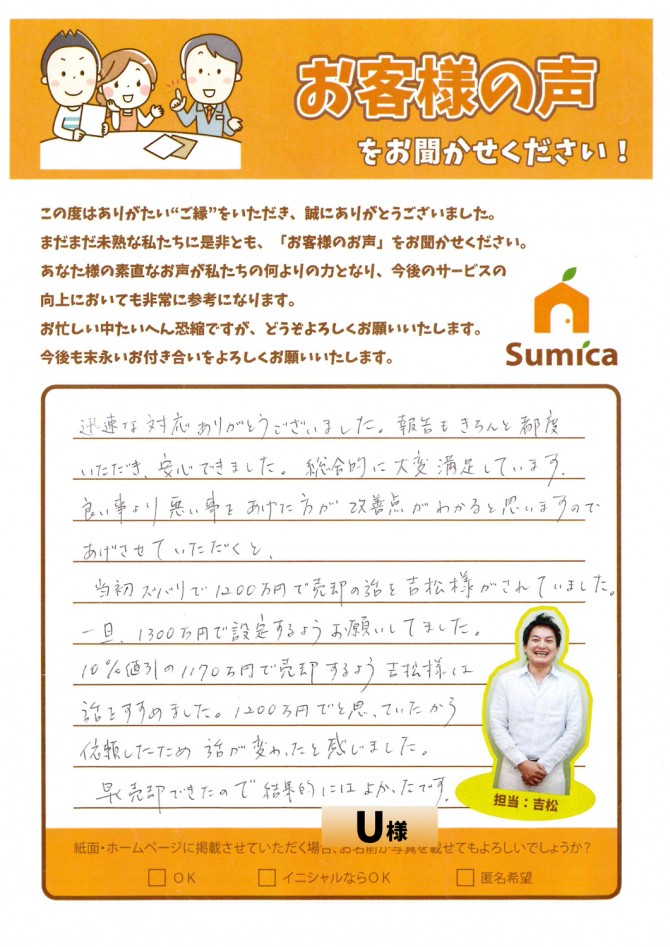 お客様の声
をお聞かせください！
この度はありがたい“ご縁”をいただき、誠にありがとうございました。
まだまだ未熟な私たちに是非とも、「お客様のお声」をお聞かせください。
あなた様の素直なお声が私たちの何よりの力となり、今後のサービスの
向上においても非常に参考になります。
お忙しい中たいへん恐縮ですが、どうぞよろしくお願いいたします。
今後も末永いお付き合いをよろしくお願いいたします。
Sumica
迅速な対応ありがとうございました。報告もきちんと都度
いただき、安心できました。総合的に大変満足しています。
良い事より悪い事をあげた方が改善点がわかると思いますので
あげさせていただくと、
当初ズバリで1200万円で売却の話を吉松様がされていました。
一旦、1300万円で設定するようお願いしてました。
10%値引の1170万円で売却するよう吉松様は
話をすすめました。1200万円でと思っていたから
依頼したため話が変わったと感じました。
早く売却できたので結果的にはよかったです。
担当：吉松
U様
紙面・ホームページに掲載させていただく場合、お名前か写真を載せてもよろしいでしょうか？
OK
イニシャルならOK
匿名希望